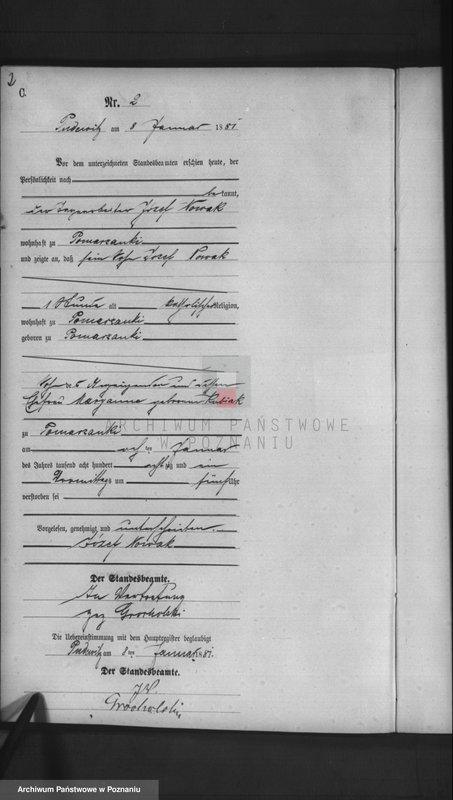 2
C.
Nr. 2
Pudewitz am 8 Januar 1881
Vor dem unterzeichneten Standesbeamten erschien heute, der
Persönlichkeit nach
bekannt,
der Tagearbeiter Jozef Nowak
wohnhaft zu Pomarzanki
und zeigte an, daß sein Sohn Jozef Nowak
1 Stunde alt katholischer Religion,
wohnhaft zu Pomarzanki
geboren zu Pomarzanki
Sohn des Anzeigenden und dessen
Ehefrau Maryanna geborene Kubiak
zu Pomarzanki
am acht ten Januar
des Jahres tausend acht hundert achtzig und ein
Vormittags um fünf Uhr
verstorben sei
Vorgelesen, genehmigt und unterschrieben.
Józef Nowak
Der Standesbeamte.
In Vertretung
gez Grocholski
Die Uebereinstimmung mit dem Hauptregister beglaubigt
Pudewitz am 8 ten Januar 1881.
Der Standesbeamte.
J. V.
Grocholski
ARCHIWUM PAŃSTWOWE
W POZNANIU
Archiwum Państwowe w Poznaniu